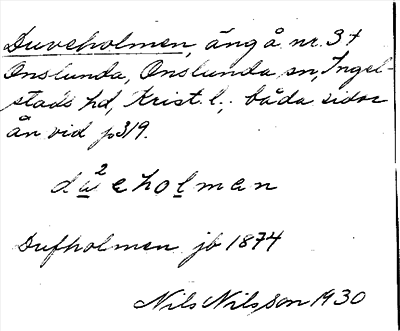 Duveholmen, äng å nr. 3 +
Onslunda, Onslunda sn, Ingel-
stads hd, Krist. l., båda sidor
ån vid p319.
du²eholman
Dufholmen jb 1874
Nils Nilsson 1930